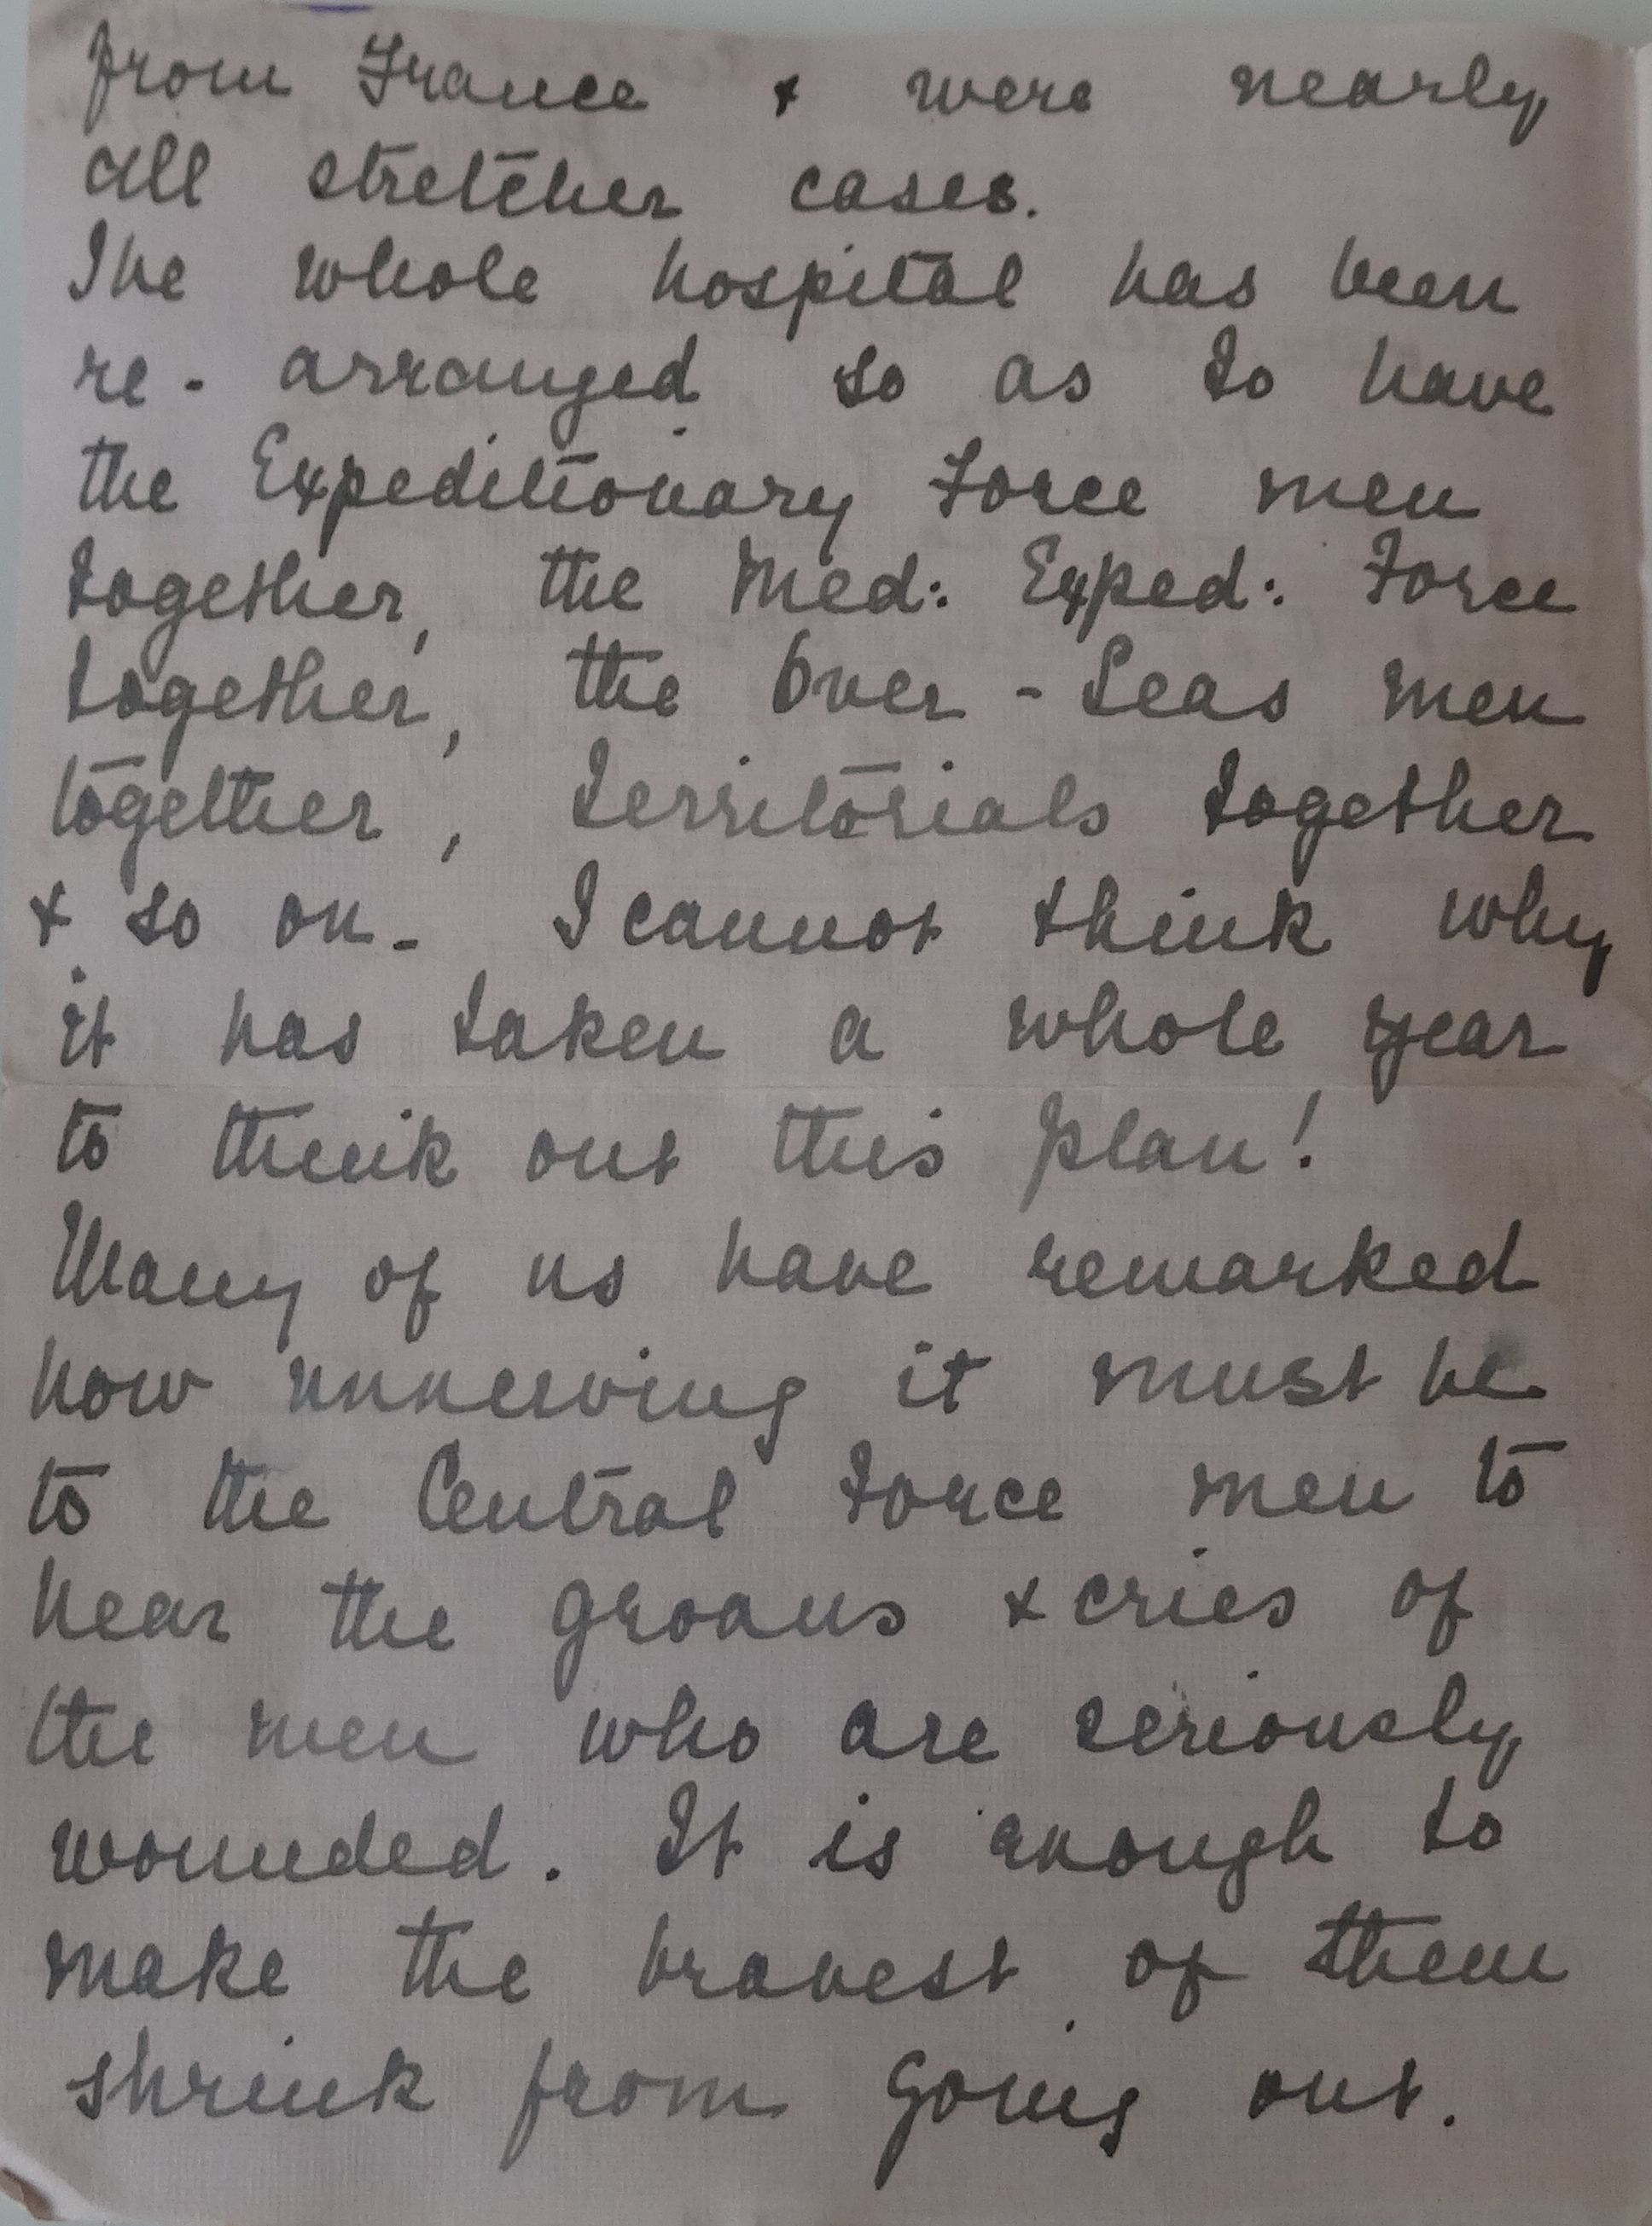 from France & were nearly
all stretcher cases.
The whole hospital has been
re-arranged so as to have
the Expeditionary Force men
together, the Med: Exped: Force
together, the Over-Seas men
together, territorials together
& so on. I cannot think why
it has taken a whole year
to think out this plan!
Many of us have remarked
how unnerving it must be
to the Central Force men to
hear the groans & cries of
the men who are seriously
wounded. It is enough to
make the bravest of them
shrink from going out.